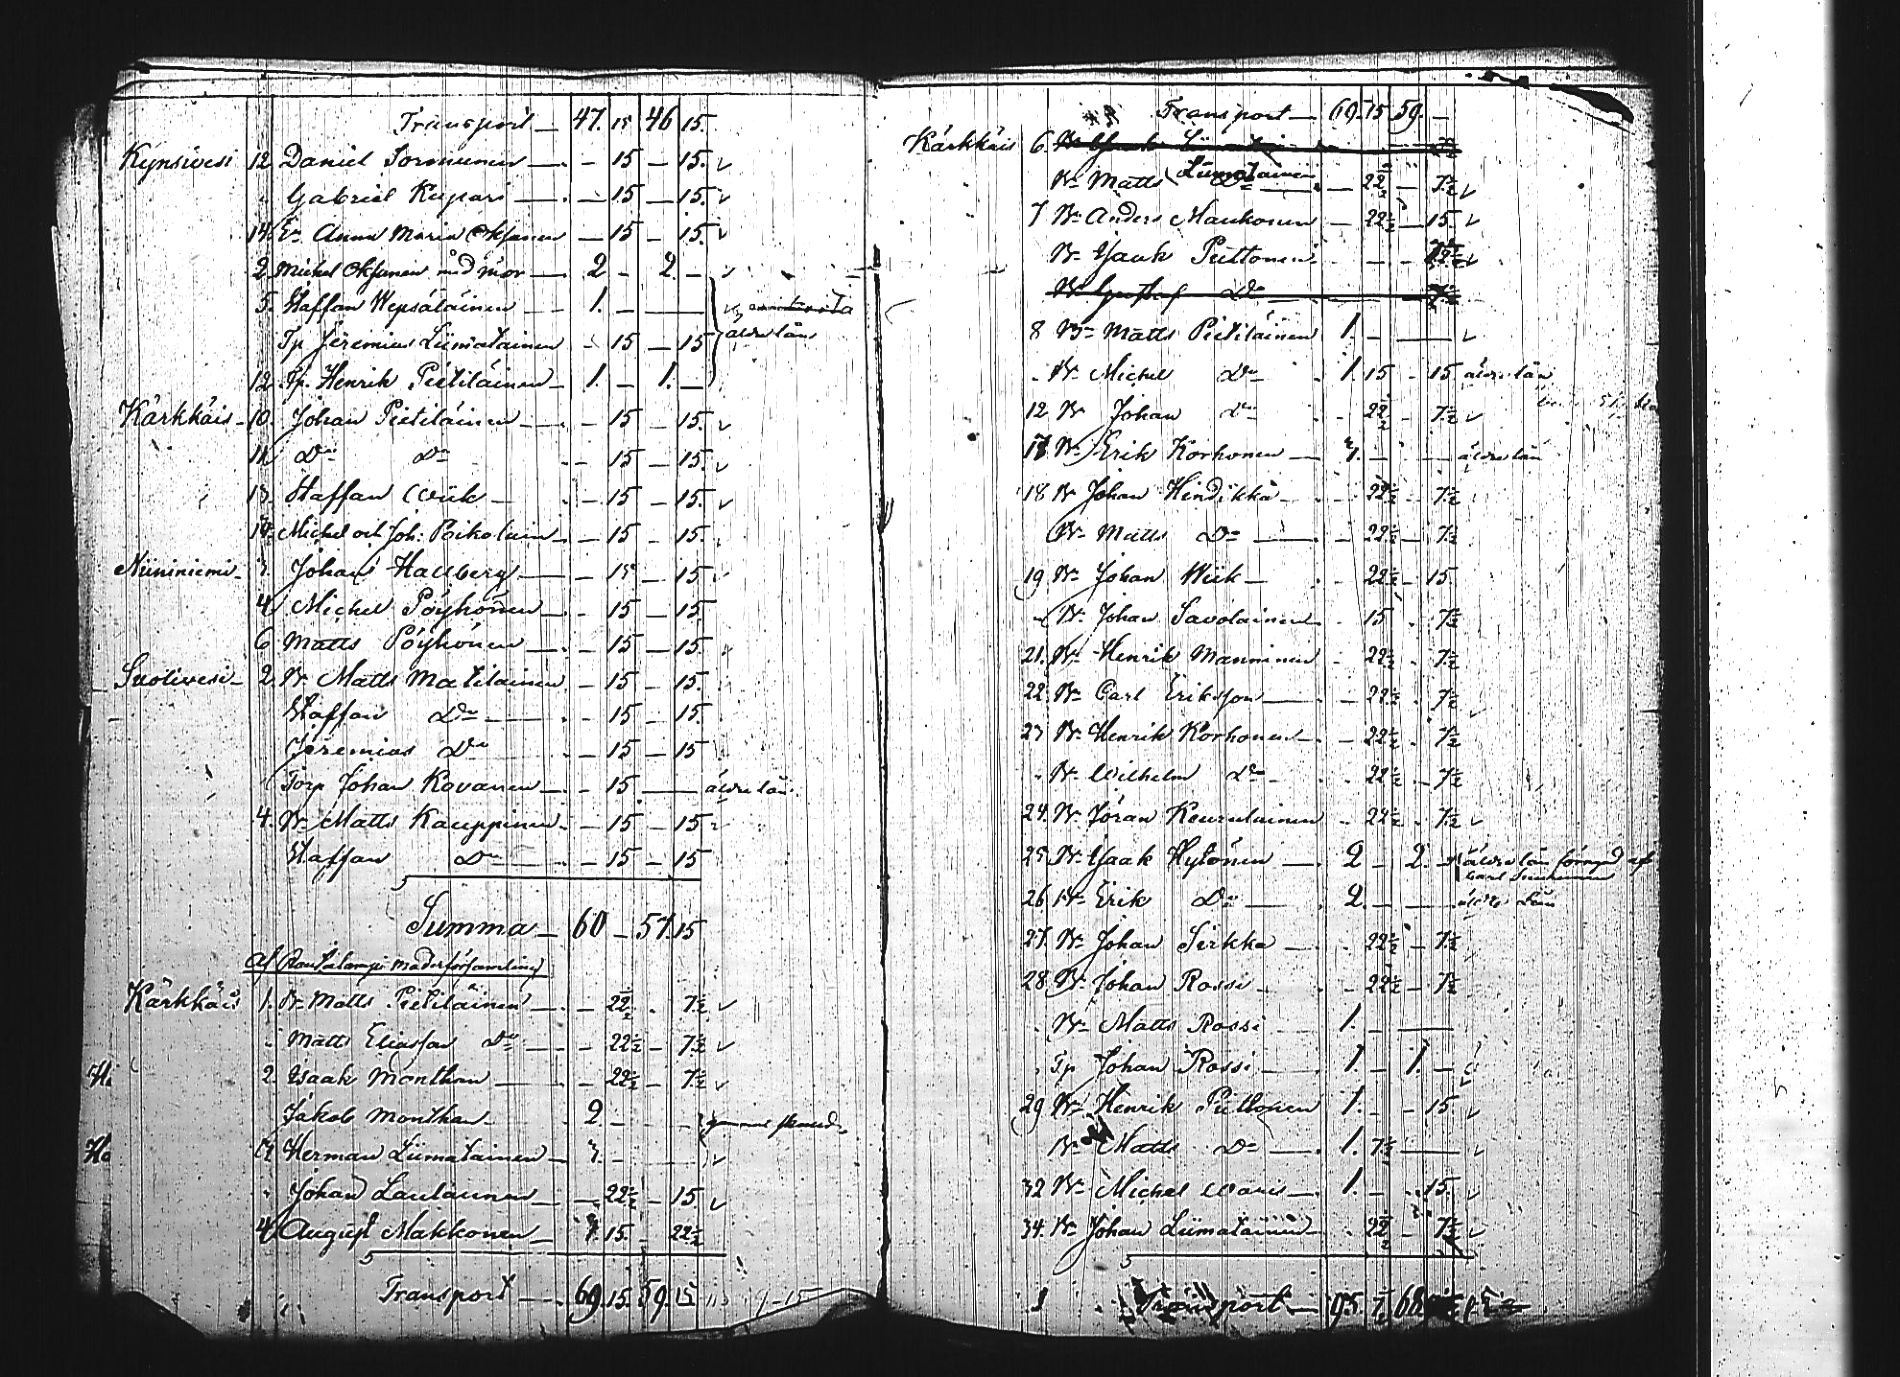 Transport — 47. 15 46 15.
Kynsivesi 12. Daniel Sormunen — 15 — 15.
Gabriel Kupari — 15 — 15.
14. Ea Anna Maria Oksanen — 15 — 15.
2. Michel Oksanen med mor — 2 — 2. —
5. Staffan Wepsäläinen — 1. —
Tp. Jeremias Liimatainen — 15 — 15 äldre lån
12. Tp. Henrik Pietiläinen — 1. — 1. —
Kärkkäis — 10. Johan Pietiläinen — 15 — 15.
11. Do Do — 15 — 15.
13. Staffan Wiik — 15 — 15.
14. Michel och Joh: Poikolain — 15 — 15.
Niininiemi — 3. Johan Hallberg — 15 — 15
4. Michel Pöyhönen — 15 — 15.
6. Matts Pöyhönen — 15 — 15.
Suolivesi — 2. Bn Matts Matilainen — 15 — 15.
Staffan Do — 15 — 15.
Jeremias Do — 15 — 15
Torp Johan Kovanen — 15 — äldre lån.
4. Bn Matts Kauppinen — 15 — 15
Staffan Do — 15 — 15
Summa — 60 — 57. 15
Af Rautalampi moderförsamling
Kärkkäis 1. Bn Matts Pietiläinen — 22½ . 7½
Matts Eliasson Do — 22½ — 7½
2. Isaak Monthan — 22½ — 7½
Jakob Monthan — 2 —
3. Herman Liimatainen — 3. —
Johan Lautainen — 22½ — 15
4. August Makkonen — 15. — 22½
Transport — 69. 15. 59. 15
Transport — 69. 15 59. —
Kärkkäis 6.
Bn Matts Liimatainen — 22½ — 7½
7 Bn Anders Maukonen — 22½ — 15.
Bn Isaak Puttonen
Bn Gustaf Do — 7½
8 Bn Matts Pietiläinen 1. —
Bn Michel Do . 1. 15 . 15 äldre lån
12 Bn Johan Do — 22½ — 7½
17 Bn Erik Korhonen — äldre lån
18 Bn Johan Hindikka — 22½ — 7½
Bn Matts Do — 22½ — 7½
19 Bn Johan Wiik — 22½ — 15.
Bn Johan Savolainen . 15 . 7½
21. Bn Henrik Manninen — 22½ . 7½
22. Bn Carl Eriksson — 22½ . 7½
23 Bn Henrik Korhonen — 22½ . 7½
Bn Wilhelm Do — 22½ — 7½
24. Bn Jöran Keurulainen — 22½ . 7½
25 Bn Isaak Hytönen — 2 — 2. — äldre lån
26 Bn Erik Do — 2. — äldre lån
27. Bn Johan Sirkka — 22½ — 7½
28. Bn Johan Rossi — 22½ — 7½
Bn Matts Rossi 1. —
Tp Johan Rossi — 1. — 1. —
29 Bn Henrik Puttonen 1. — 15.
Bn Matts Do — 1. 7½
32 Bn Michel Waris — 1. — 15.
34. Bn Johan Liimatainen — 22½ — 7½
Transport — 95. 7½ 68